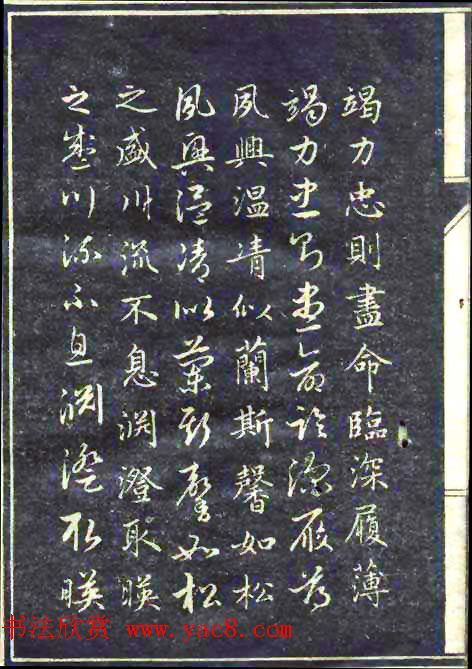 竭力忠則盡命臨深履薄
竭力忠則盡命臨深履薄
夙興温凊似蘭斯馨如松
夙興温凊似蘭斯馨如松
之盛川流不息渊澄取暎
之盛川流不息渊澄取暎
书法欣赏 www.yac8.com